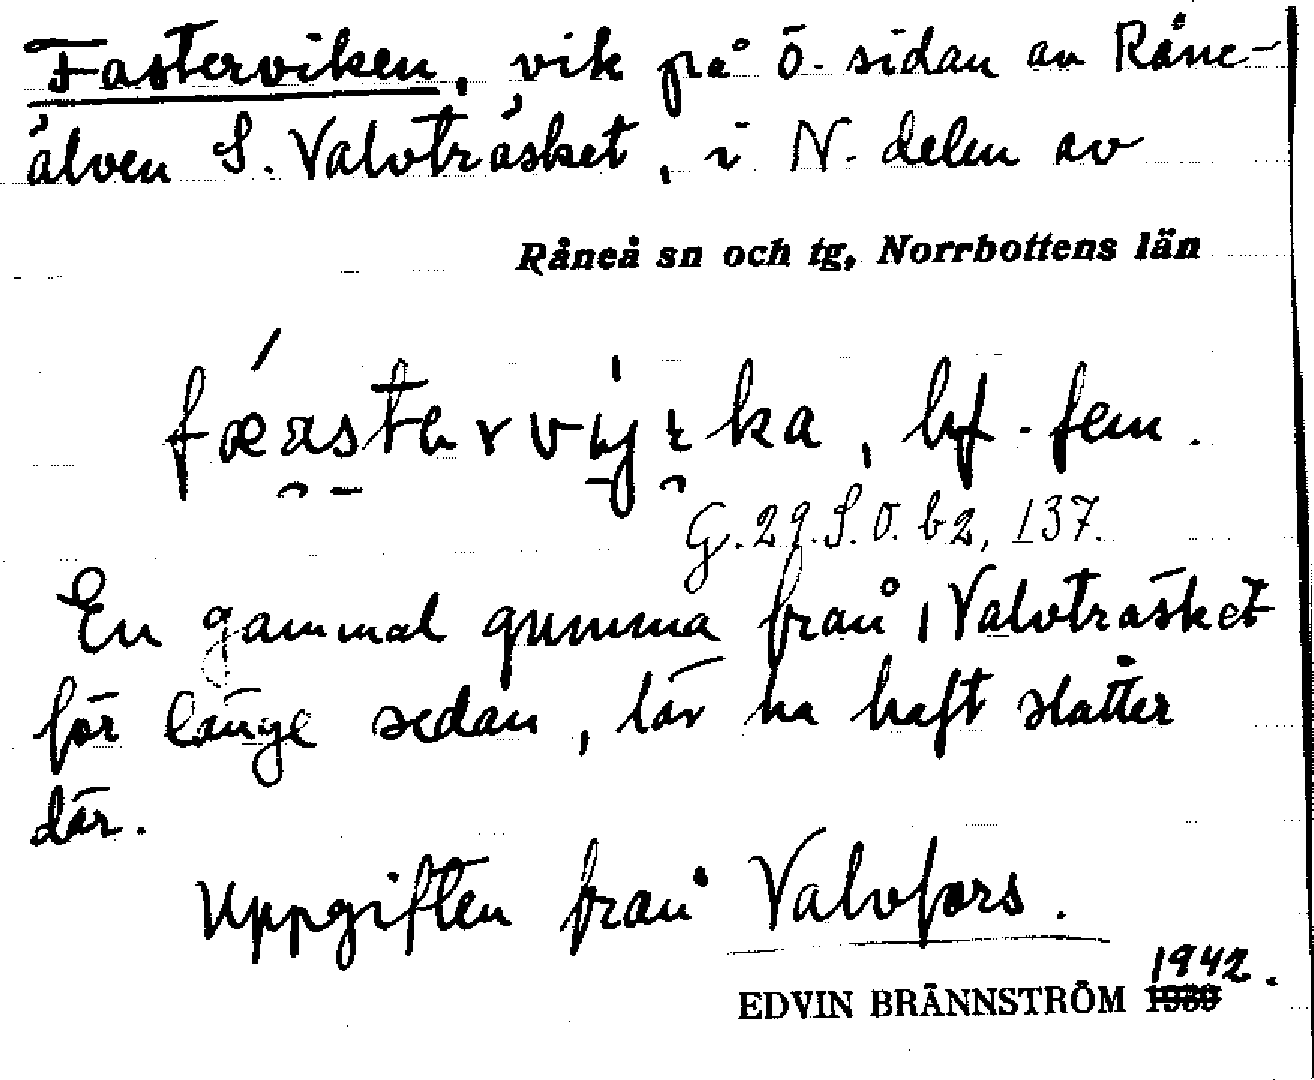 Fasterviken, vik på ö. sidan av Råne-
älven S. Valvträsket, i N. delen av
Råneå sn och tg, Norrbottens län
bf. fem.
G. 29. S. O. b 2, 137.
En gammal gumma från Valvträsket
för länge sedan, lär ha haft slåtter
där.
Uppgiften från Valvfors.
1942.
EDVIN BRÄNNSTRÖM 1930